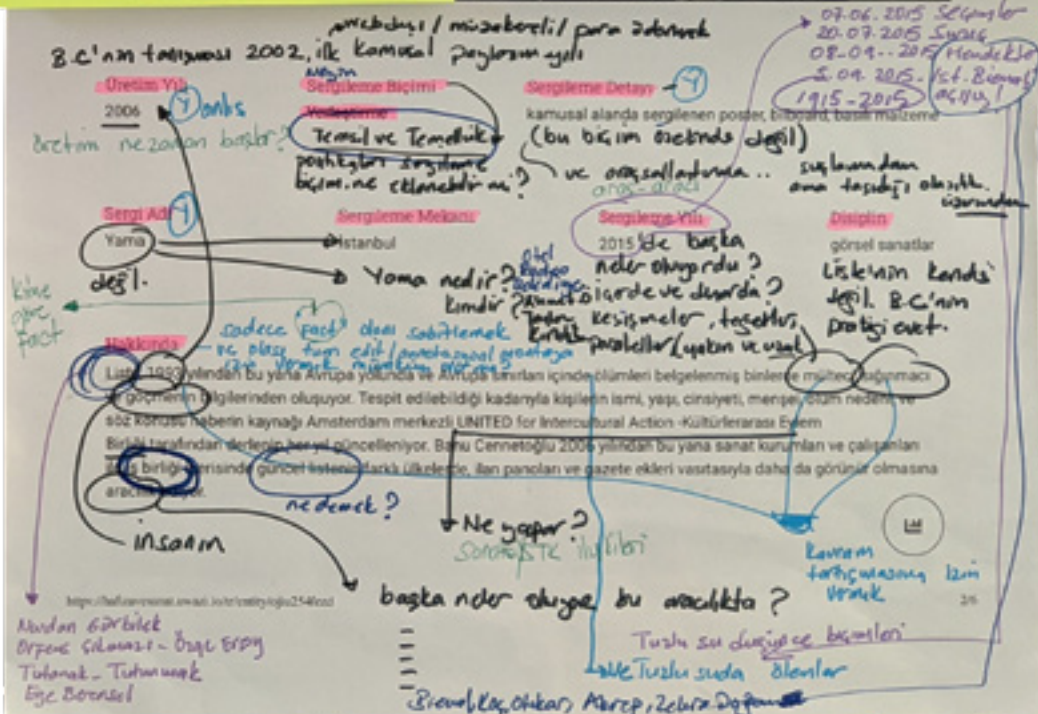 müzakereli / para ödemek
B.C'nin tanışması 2002, ilk kamusal paylaşım yılı
07.06.2015 Seçimler
20.07.2015 Suruç
08-09..2015 Hendekler
5.09.2015 - İst. Bienali açılışı
1915-2015
Üretim Yılı
2006
Y
Üretim ne zaman başlar?
Sergileme Biçimi
Yerleştirme
Temsil ve Temellük
sergileme
biçimi.ne eklenebilir mi?
Sergileme Detayı
Y
kamusal alanda sergilenen poster, bilboard, basılı malzeme
(bu biçim özetinde değil)
ve araçsallaştırma..
araç-aracı
suçlamadan
ama taşıdığı olasılık
üzerinden
Sergi Adı
Y
Yama
değil.
Sergileme Mekanı
İstanbul
Yama nedir?
kimdir?
Sergileme Yılı
2015'de başka
neler oluyordu?
içerde ve dışarda?
kesişmeler,
paraleller (yakın ve uzak)
Disiplin
görsel sanatlar
Liste'nin kendisi
değil. B.C'nin
pratiği evet.
Kime
göre
fact
Hakkında
sadece "fact" olanı sabitlemek
Liste 1993 yılından bu yana Avrupa yolunda ve Avrupa sınırları içinde ölümleri belgelenmiş binlerce mülteci, sığınmacı
ve göçmenin bilgilerinden oluşuyor. Tespit edilebildiği kadarıyla kişilerin ismi, yaşı, cinsiyeti, menşei, ölüm nedeni ve
söz konusu haberin kaynağı Amsterdam merkezli UNITED for Intercultural Action -Kültürlerarası Eylem
Birliği tarafından derlenip her yıl güncelleniyor. Banu Cennetoğlu 2006 yılından bu yana sanat kurumları ve çalışanları
ile iş birliği içerisinde güncel listenin farklı ülkelerde, ilan panoları ve gazete ekleri vasıtasıyla daha da görünür olmasına
aracılık ediyor.
ne demek?
insanın
Ne yapar?
Sanat/STK ilişkileri
kavram
tartışmasına izin
vermek
başka neler oluyor bu aracılıkta?
2/6
Nurdan Gürbilek
Örgens Çılması - Özge Ersoy
Tutanak - Tutunmak
Ege Berensel
Tuzlu su düşünce biçimleri
ve Tuzlu suda ölenler
Bienal, Koç, Otokar, Akrep, Zehra Doğan